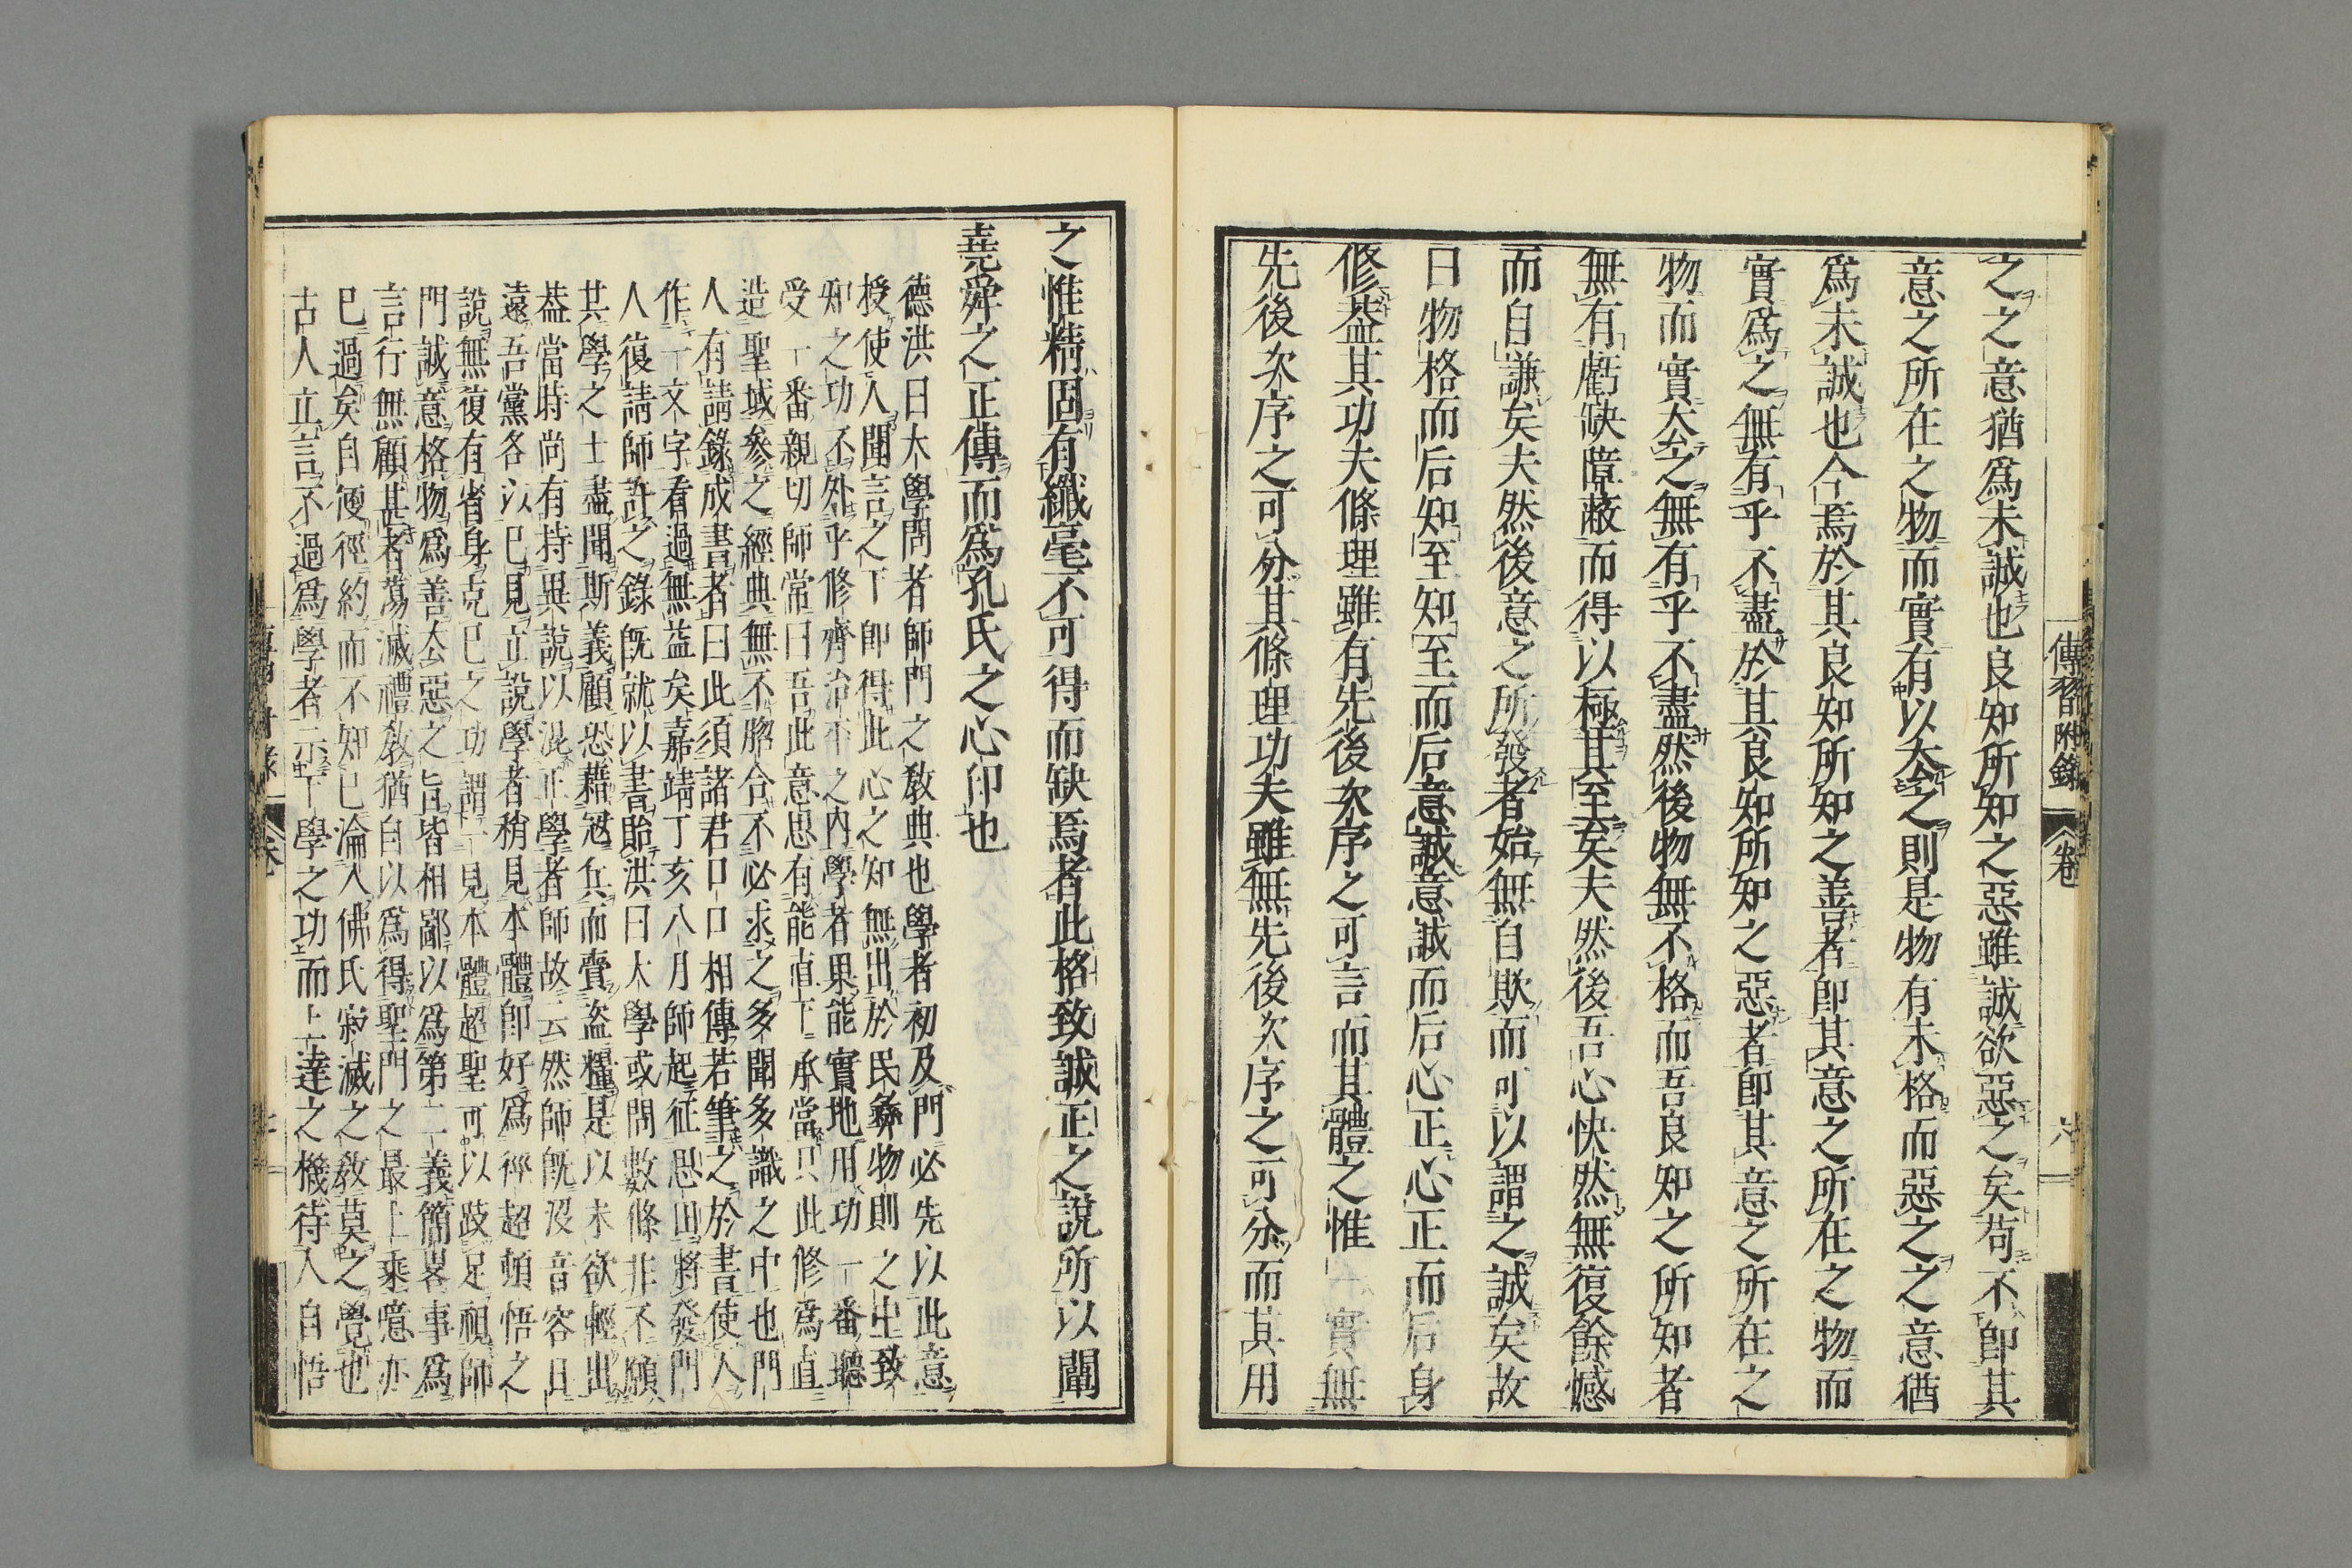 傳習附錄 卷 六
之之意猶爲未誠也良知所知之惡雖誠欲惡之矣苟不卽其
意之所在之物而實有以去之則是物有未格而惡之之意猶
爲未誠也今焉於其良知所知之善者卽其意之所在之物而
實爲之無有乎不盡於其良知所知之惡者卽其意之所在之
物而實去之無有乎不盡然後物無不格而吾良知之所知者
無有虧缺障蔽而得以極其至矣夫然後吾心快然無復餘憾
而自謙矣夫然後意之所發者始無自欺而可以謂之誠矣故
曰物格而后知至知至而后意誠意誠而后心正心正而后身
修葢其功夫條理雖有先後次序之可言而其體之惟一實無
先後次序之可分其條理功夫雖無先後次序之可分而其用
之惟精固有纖毫不可得而缺焉者此格致誠正之說所以闡
堯舜之正傳而爲孔氏之心印也
德洪曰大學問者師門之敎典也學者初及門必先以此意
授使人聞言之下卽得此心之知無出於民彝物則之中致
知之功不外乎修齊治平之內學者果能實地用功一番聽
受一番親切師常曰吾此意思有能直下承當只此修爲直
造聖域參之經典無不脗合不必求之多聞多識之中也門
人有請錄成書者曰此須諸君口口相傳若筆之於書使人
作一文字看過無益矣嘉靖丁亥八月師起征思田將發門
人復請師許之錄旣就以書貽洪曰大學或問數條非不願
共學之士盡聞斯義顧恐藉寇兵而賷盜糧是以未欲輕出
葢當時尚有持異說以混正學者師故云然師旣沒音容日
遠吾黨各以己見立說學者稍見本體卽好爲徑超頓悟之
說無復有省身克己之功謂一見本體超聖可以跂足視師
門誠意格物爲善去惡之旨皆相鄙以爲第二義簡畧事爲
言行無顧甚者蕩滅禮敎猶自以爲得聖門之最上乘噫亦
已過矣自便徑約而不知已淪入佛氏寂滅之敎莫之覺也
古人立言不過爲學者示下學之功而上達之機待人自悟